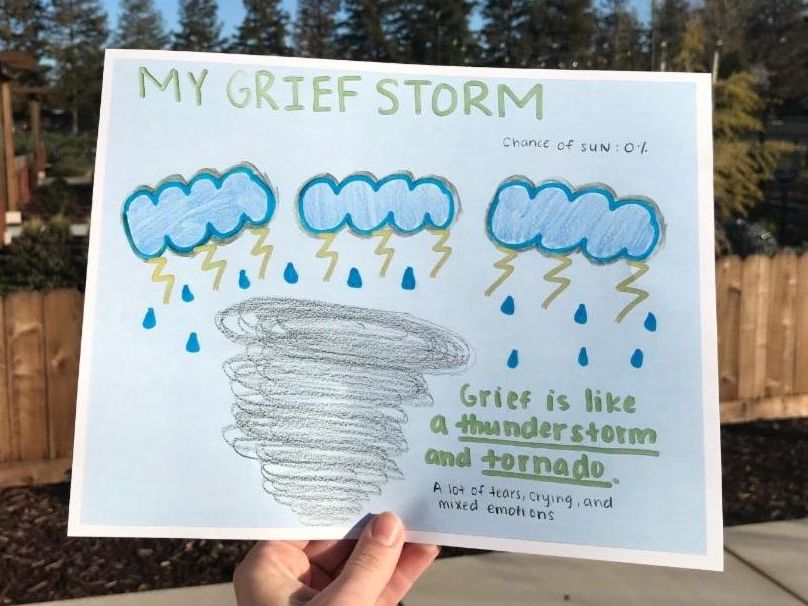 MY GRIEF STORM
Chance of SUN: 0%
Grief is like
a thunderstorm
and tornado.
A lot of tears, crying, and
mixed emotions